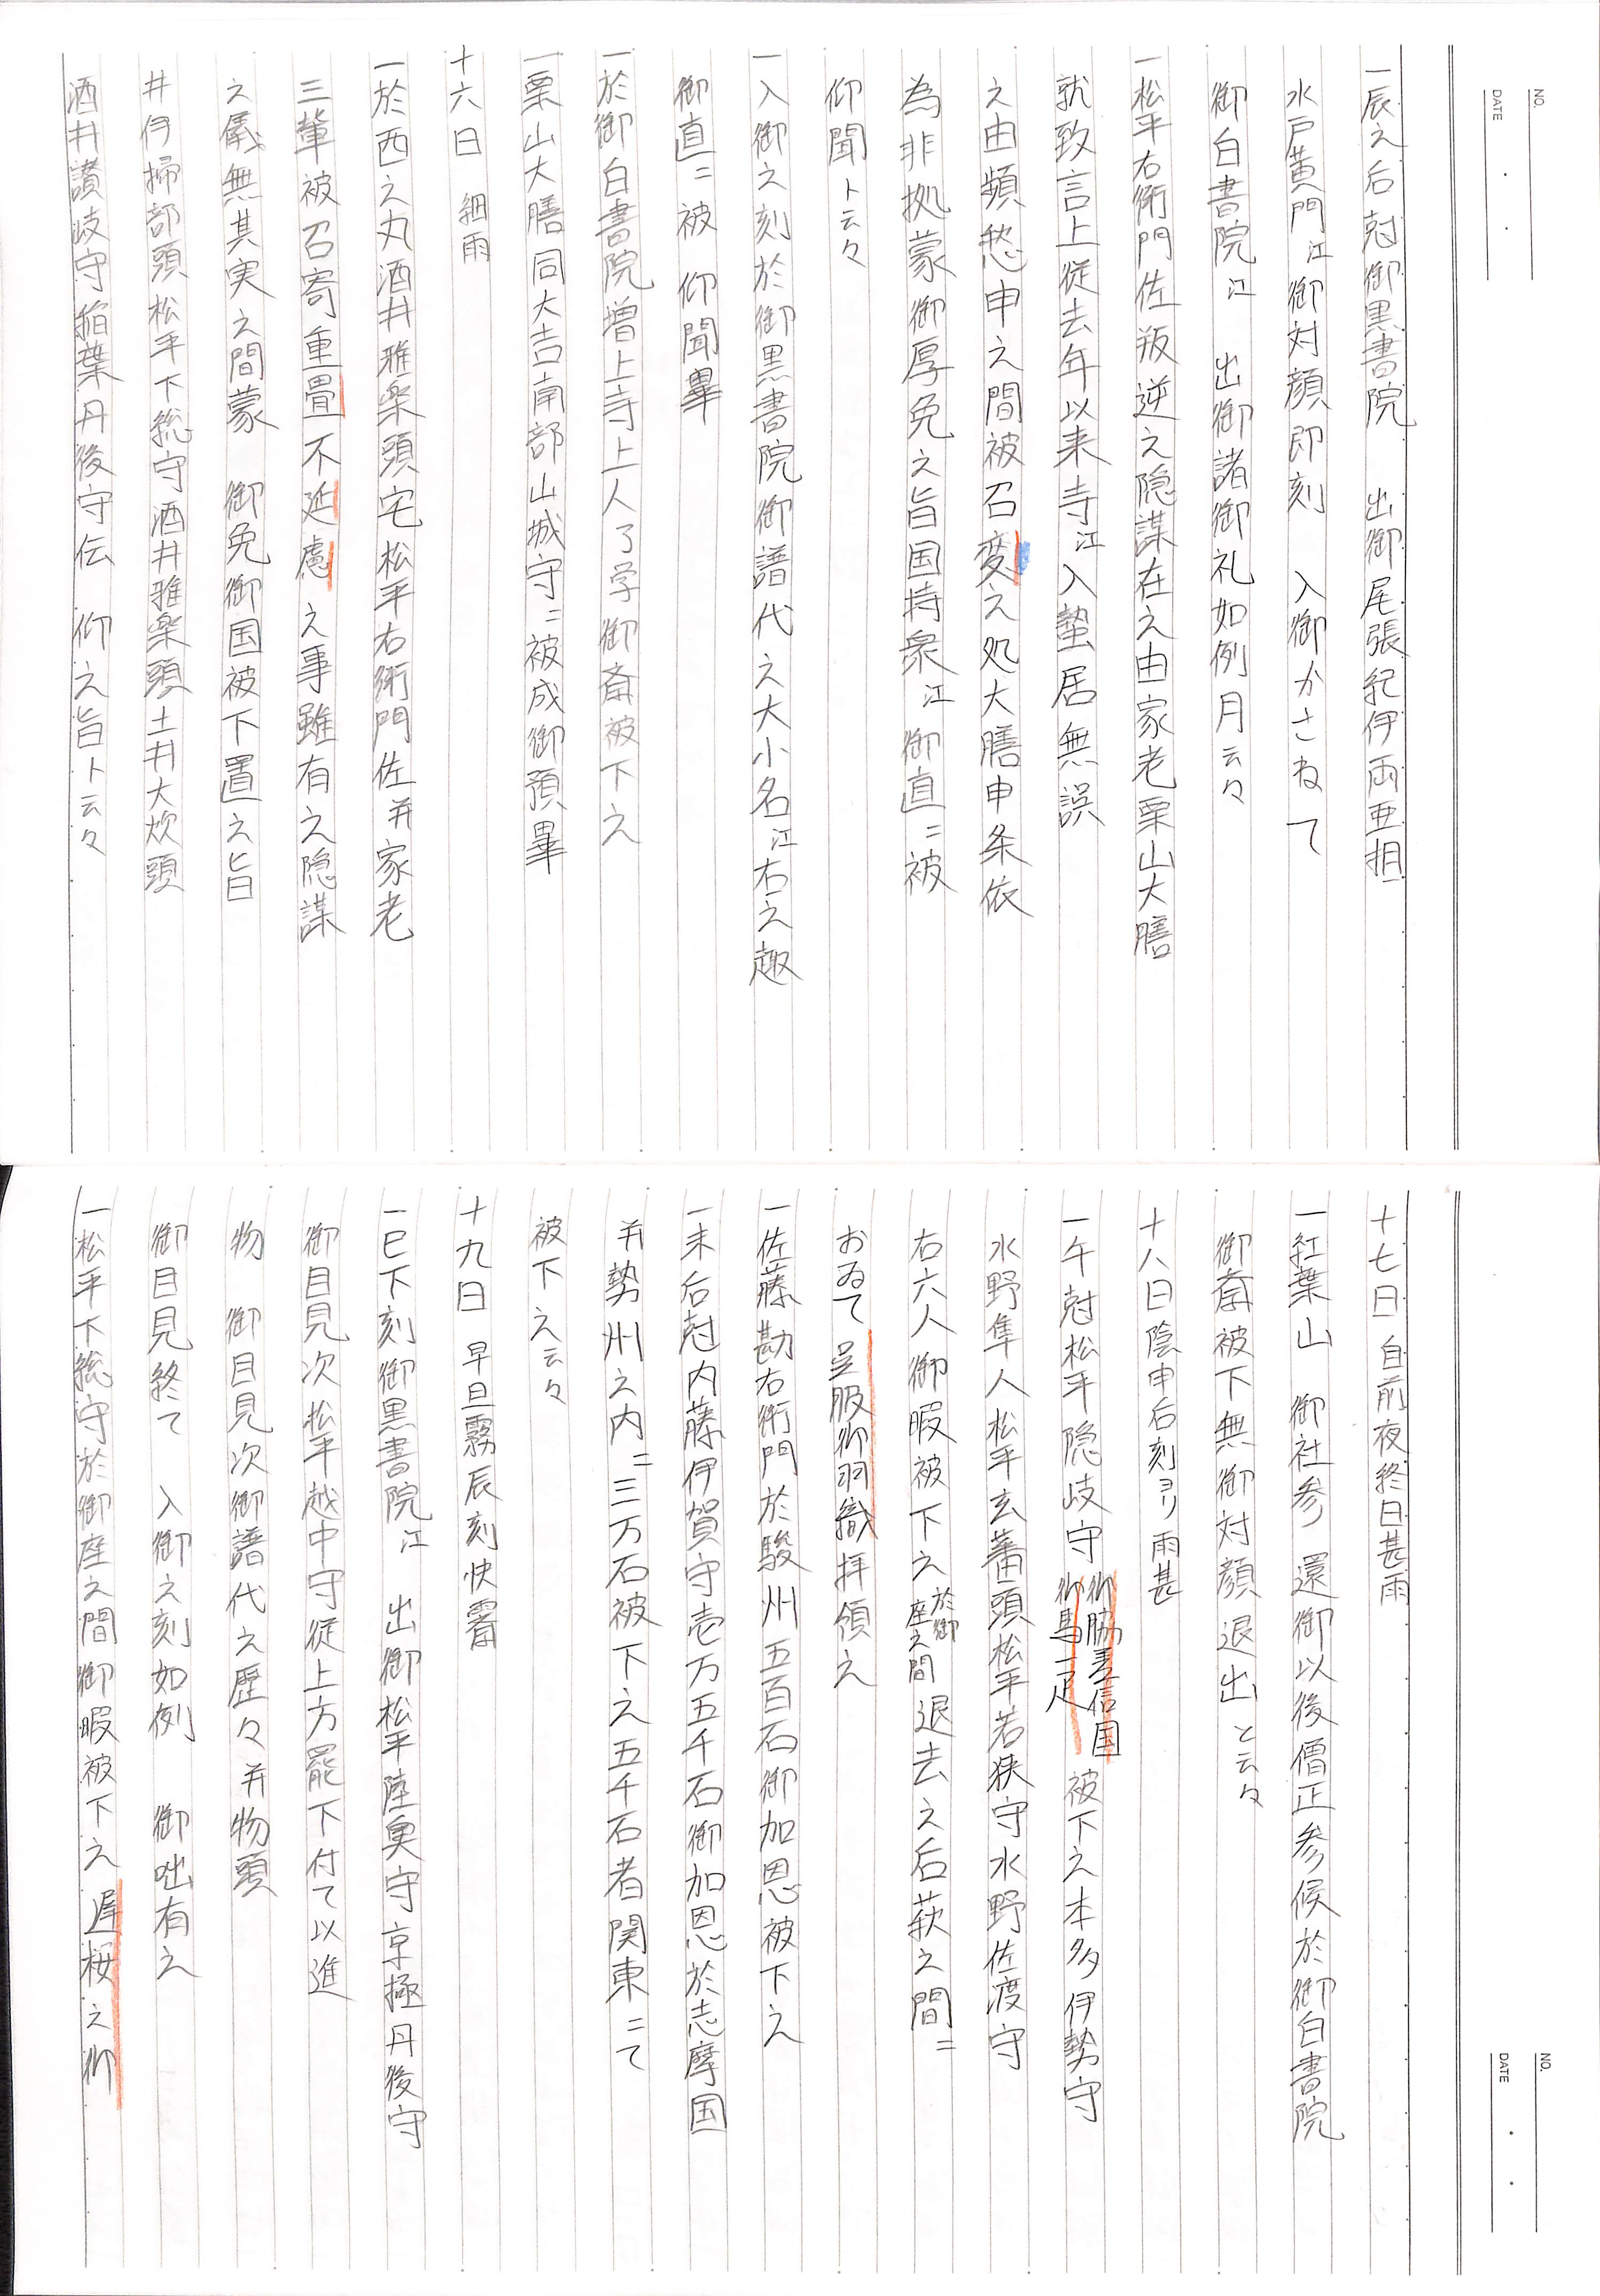 NO.
DATE
一辰之后尅御黒書院　出御尾張紀伊両亜相
水戸黄門江御対顔即刻　入御かさねて
御白書院江　出御諸御礼如例月云々
一松平右衛門佐叛逆之隠謀在之由家老栗山大膳
就致言上従去年以来寺江入蟄居無誤
之由頻愁申之間被召変之処大膳申条依
為非拠蒙御厚免之旨国持衆江御直ニ被
仰聞ト云々
一入御之刻於御黒書院御譜代之大小名江右之趣
御直ニ被　仰聞畢
一於御白書院増上寺上人了学御斎被下之
一栗山大膳同大吉南部山城守ニ被成御預畢
十六日　細雨
一於西之丸酒井雅楽頭宅松平右衛門佐并家老
三輩被召寄重畳不延慮之事雖有之隠謀
之儀無其実之間蒙　御免御国被下置之旨
井伊掃部頭松平下総守酒井雅楽頭土井大炊頭
酒井讃岐守稲葉丹後守伝　仰之旨ト云々
NO.
DATE
十七日　自前夜終日甚雨
一紅葉山　御社参　還御以後僧正参候於御白書院
御斎被下無御対顔退出と云々
十八日陰申后刻ヨリ雨甚
一午尅松平隠岐守御脇差信国御馬一疋被下之本多伊勢守
水野隼人松平玄蕃頭松平若狭守水野佐渡守
右六人御暇被下之於御座之間退去之后萩之間ニ
おゐて呈服御羽織拝領之
一佐藤勘右衛門於駿州五百石御加恩被下之
一未后尅内藤伊賀守壱万五千石御加恩於志摩国
并勢州之内ニ三万石被下之五千石者関東ニて
被下之云々
十九日　早旦霧辰刻快霽
一巳下刻御黒書院江　出御松平陸奥守京極丹後守
御目見次松平越中守従上方罷下付て以進
物　御目見次御譜代之歴々并物頭
御目見終て　入御之刻如例　御咄有之
一松平下総守於御座之間御暇被下之遅桜之御